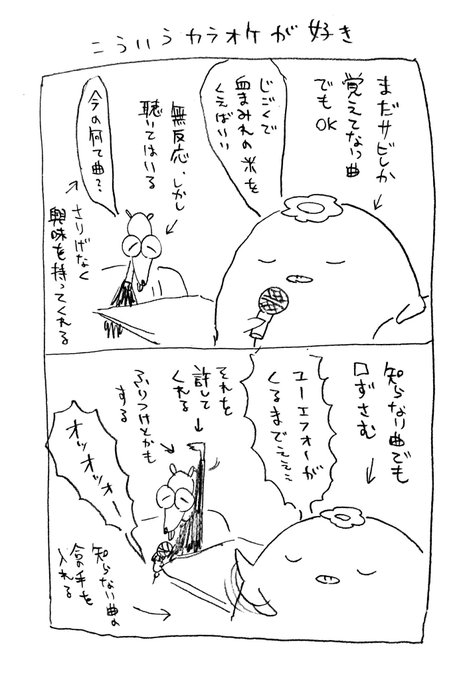 こういうカラオケが好き
まだサビしか
覚えてない曲
でもOK
じごくで
血まみれの米を
くえばいい
無反応、しかし
聴いてはいる
今の何て曲？
さりげなく
興味を持ってくれる
知らない曲でも
口ずさむ
ユーエフォーが
くるまでエエエ
それを
許して
くれる
ふりつけとかも
する
オッオッオォー
知らない曲の
合の手を
入れる